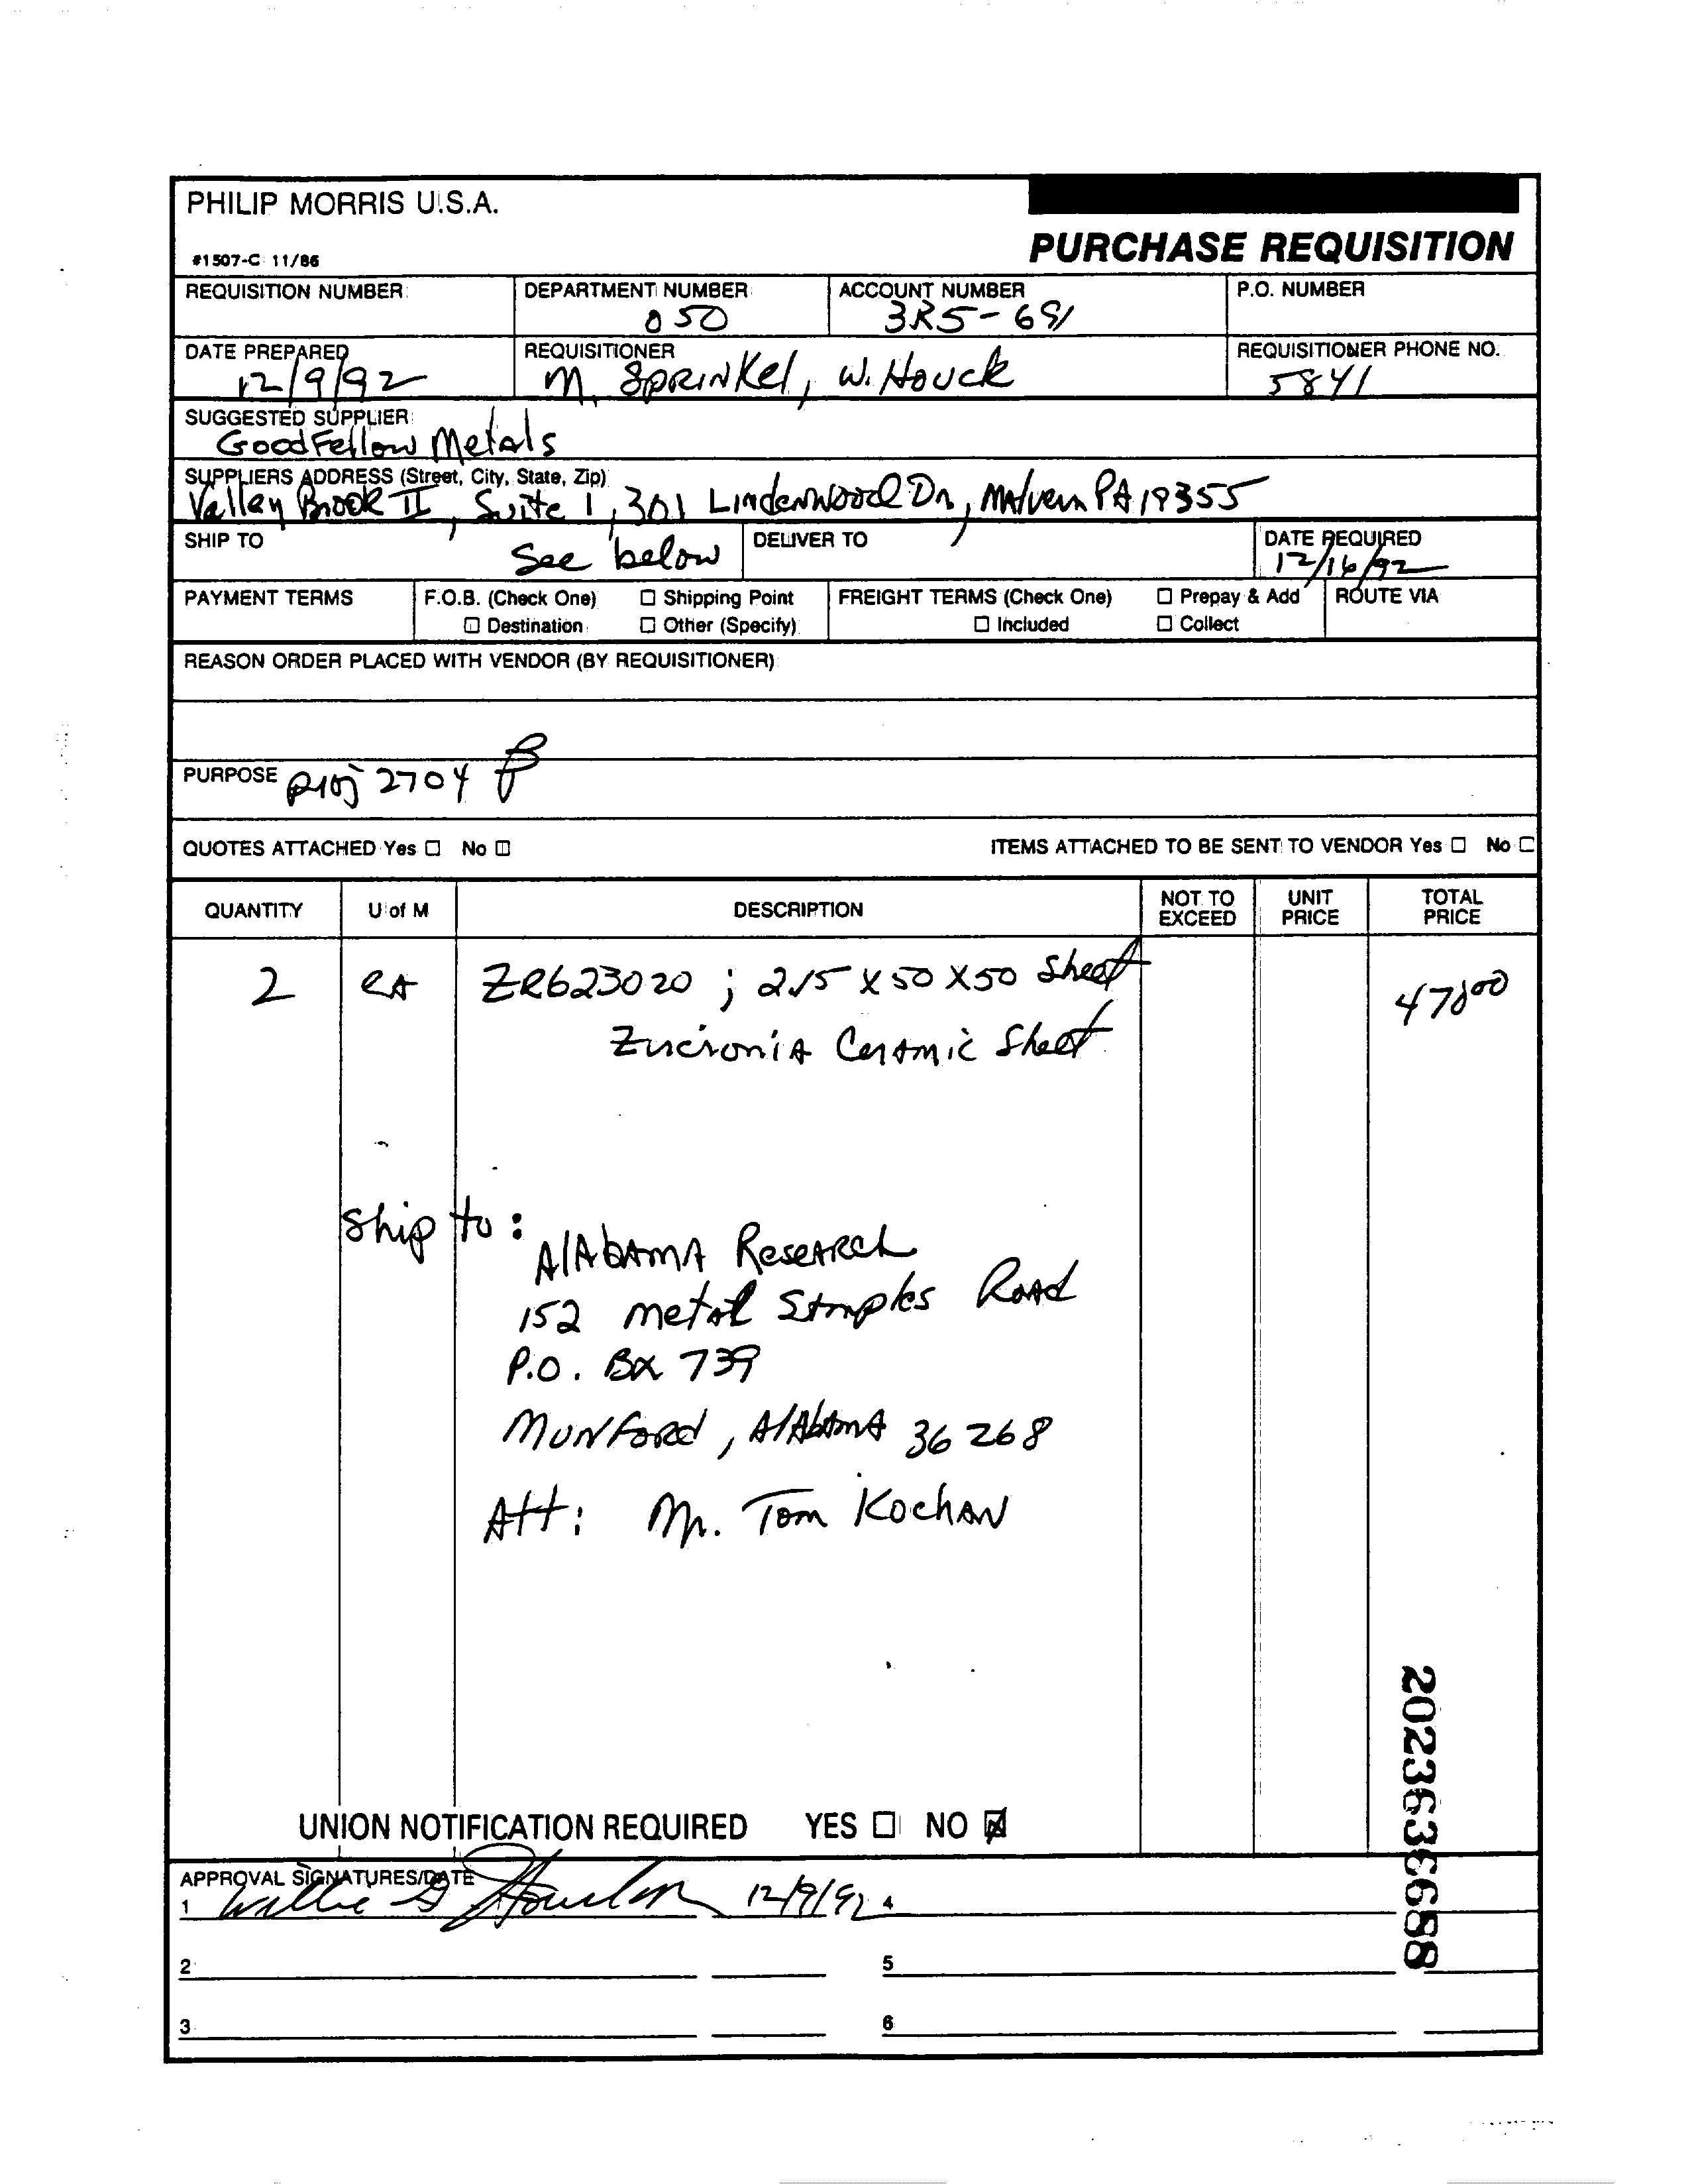 PHILIP MORRIS U.S.A.
#1507-C 11/86
PURCHASE REQUISITION
REQUISITION NUMBER
DEPARTMENT NUMBER
050
ACCOUNT NUMBER
3R5-691
P.O. NUMBER
DATE PREPARED
12/9/92
REQUISITIONER
M. SPRINKel, W. Houck
REQUISITIONER PHONE NO.
5841
SUGGESTED SUPPLIER
GoodFellow Metals
SUPPLIERS ADDRESS (Street, City, State, Zip)
Valley Brook II, Suite 1, 301 Lindenwood Dr, Malvern PA 19355
SHIP TO
See below
DELIVER TO
DATE REQUIRED
12/16/92
PAYMENT TERMS
F.O.B. (Check One) ☐ Shipping Point
☐ Destination ☐ Other (Specify)
FREIGHT TERMS (Check One) ☐ Prepay & Add
☐ Included ☐ Collect
ROUTE VIA
REASON ORDER PLACED WITH VENDOR (BY REQUISITIONER)
PURPOSE Proj 2704
QUOTES ATTACHED Yes ☐ No ☐
ITEMS ATTACHED TO BE SENT TO VENDOR Yes ☐ No ☐
QUANTITY U of M DESCRIPTION NOT TO EXCEED UNIT PRICE TOTAL PRICE
2 eA ZR623020 ; 2.15 X 50 X 50 Sheet 478 00
Zircronia Ceramic Sheet
Ship to :
AlAbAmA ReseARch
152 metal Samples Road
P.O. Box 739
MUNford, AlAbAmA 36268
Att: Mr. Tom KochAN
UNION NOTIFICATION REQUIRED YES ☐ NO ☒
APPROVAL SIGNATURES/DATE
1 Willie G Houck 12/9/92 4
2 5
3 6
2023636688